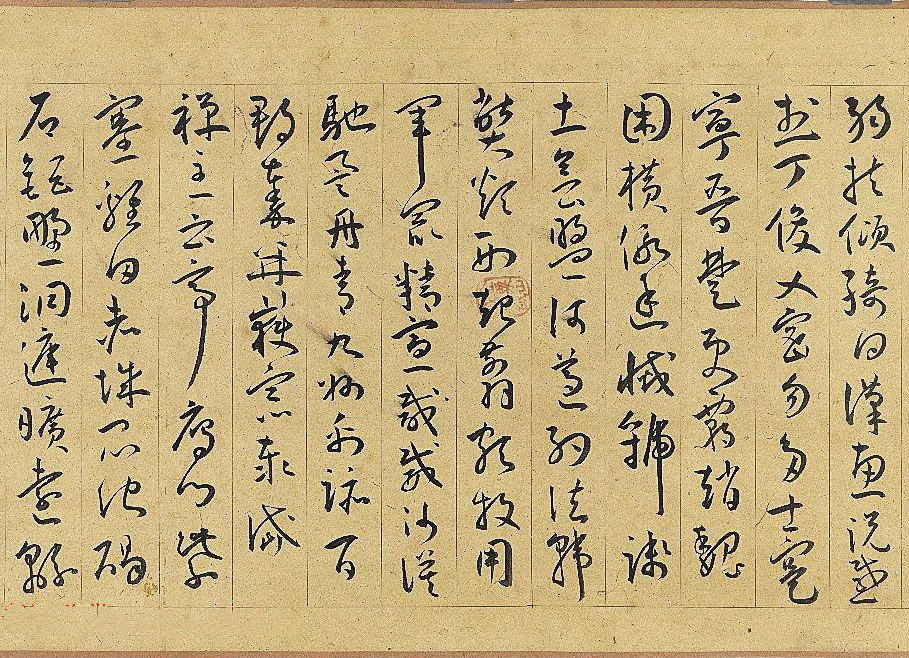 弱扶傾綺回漢惠說感
武丁俊乂密勿多士寔
寧晉楚更霸趙魏
困橫假途滅虢踐
土會盟何遵約法韓
弊煩刑起翦頗牧用
軍最精宣威威沙漠
馳譽丹青九州禹跡百
郡秦并嶽宗恒岱
禪主云亭雁門紫
塞雞田赤城昆池碣
石鉅野洞庭曠遠綿